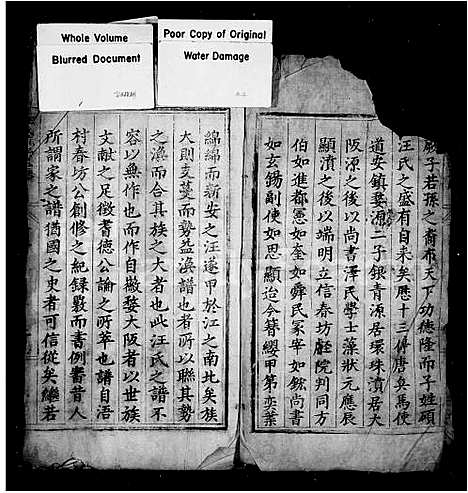 Whole Volume
Blurred Document
Poor Copy of Original
Water Damage
厥子若孫之裔布天下功德隆而子姓碩
汪氏之盛有自來矣歷十三傳唐奠馬使
道安鎮婺源二子銀青源居環珠濆居大
阪源之後以尚書澤民學士藻狀元應辰
顯濆之後以端明立信春坊庭院判同方
伯如進都憲如奎如舜民冢宰如鋐尚書
如玄錫副使如思顯迨今簪纓甲第奕葉
綿綿而新安之汪遂甲於江之南北矣族
大則支蔓而勢益渙譜也者所以聯其勢
之渙而合其族之大者也此汪氏之譜不
容以無作也而作自撤婺大阪者以世族
文獻之足徵耆德公諭之所萃也譜自浯
村春坊公創修之紀錄嚴而書例審昔人
所謂家之譜猶國之史者可信從矣繼若